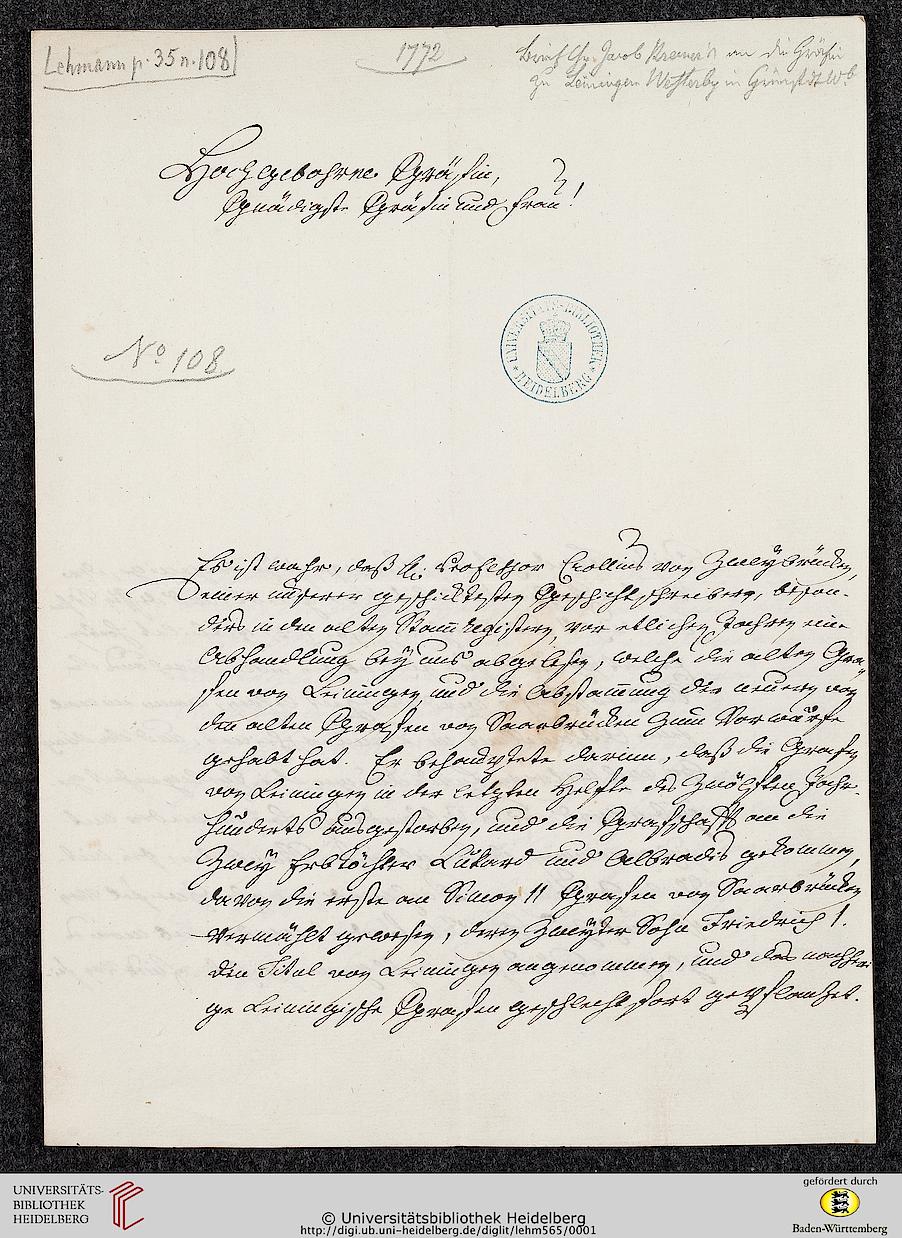 Lehmann p. 35 n. 108
1772
Brief Chr. Jacob Kremer's an die Gräfin
zu Leiningen Westerbg in Grünst
Hochgebohrne Gräfin,
Gnädigste Gräfin und Frau!
No 108
UNIVERSITÄTS-BIBLIOTHEK
HEIDELBERG
Es ist wahr, daß H. Professor Crollius von Zweybrücken,
einer unserer geschicktesten Geschichtschreibern, beson-
ders in den alten Stammregistern, vor etlichen Jahren eine
Abhandlung bey uns abgelesen, welche die alten Gra-
fen von Leiningen und die Abstammung der neuern von
den alten Grafen von Saarbrücken zum Vorwurfe
gehabt hat. Er behauptete darinn, daß die Grafen
von Leiningen in der letzten Helfte des Zwölften Jahr-
hunderts ausgestorben, und die Grafschafft an die
zwey Erbtöchter Lukard und Albradis gekommen,
davon die erste an Simon II Grafen von Saarbrücken
vermählt gewesen, deren zweyter Sohn Friedrich I.
den Titul von Leiningen angenommen, und das nachheri-
ge Leiningische Grafen geschlecht fort gepflanzet.
UNIVERSITÄTS-
BIBLIOTHEK
HEIDELBERG
© Universitätsbibliothek Heidelberg
http://digi.ub.uni-heidelberg.de/diglit/lehm565/0001
gefördert durch
Baden-Württemberg